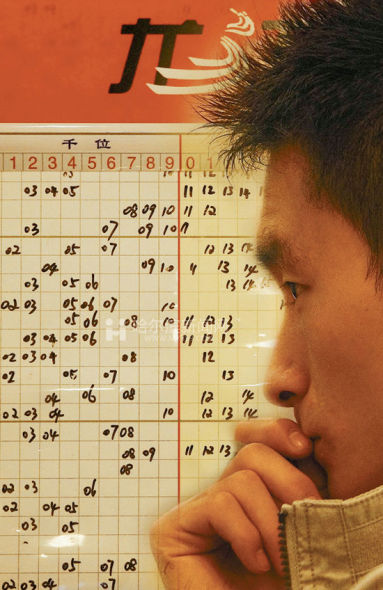 龙
千 位
1 2 3 4 5 6 7 8 9 0 1
03 04 05 11 12 13 14
08 09 10 11 12
03 07 09 10 11
02 05 07 12 13 14
04 09 10 11 13 14
03 05 06 13 14
02 03 05 06 07 10
05 06 08 10 11 12 13
03 04 05 06 11 12 13
02 03 04 08 12
02 05 07 10 13
04 06 08 12 14
02 03 04 10 12 13 14
03 04 07 08
08 09 11 12 13
08
02 03 06
02 04 05
03 05
05 07 08
02 03 04 07